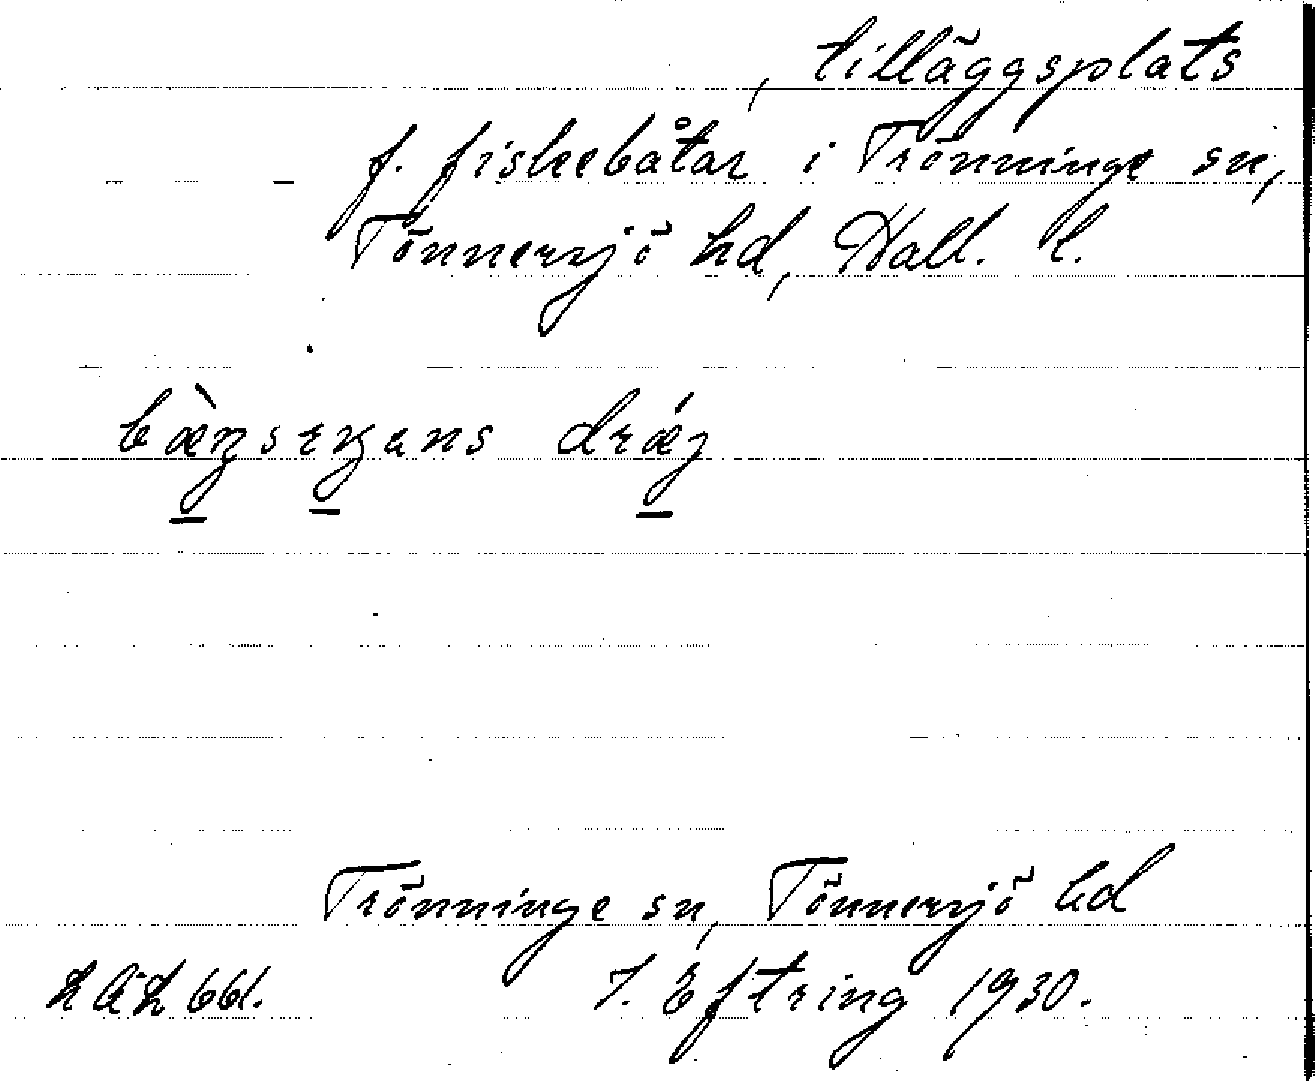 , tilläggsplats
f. fiskebåtar i Trönninge sn,
Tönnersjö hd, Hall. l.
dræ´j
Trönninge sn, Tönnersjö hd
661. J. Eftring 1930.